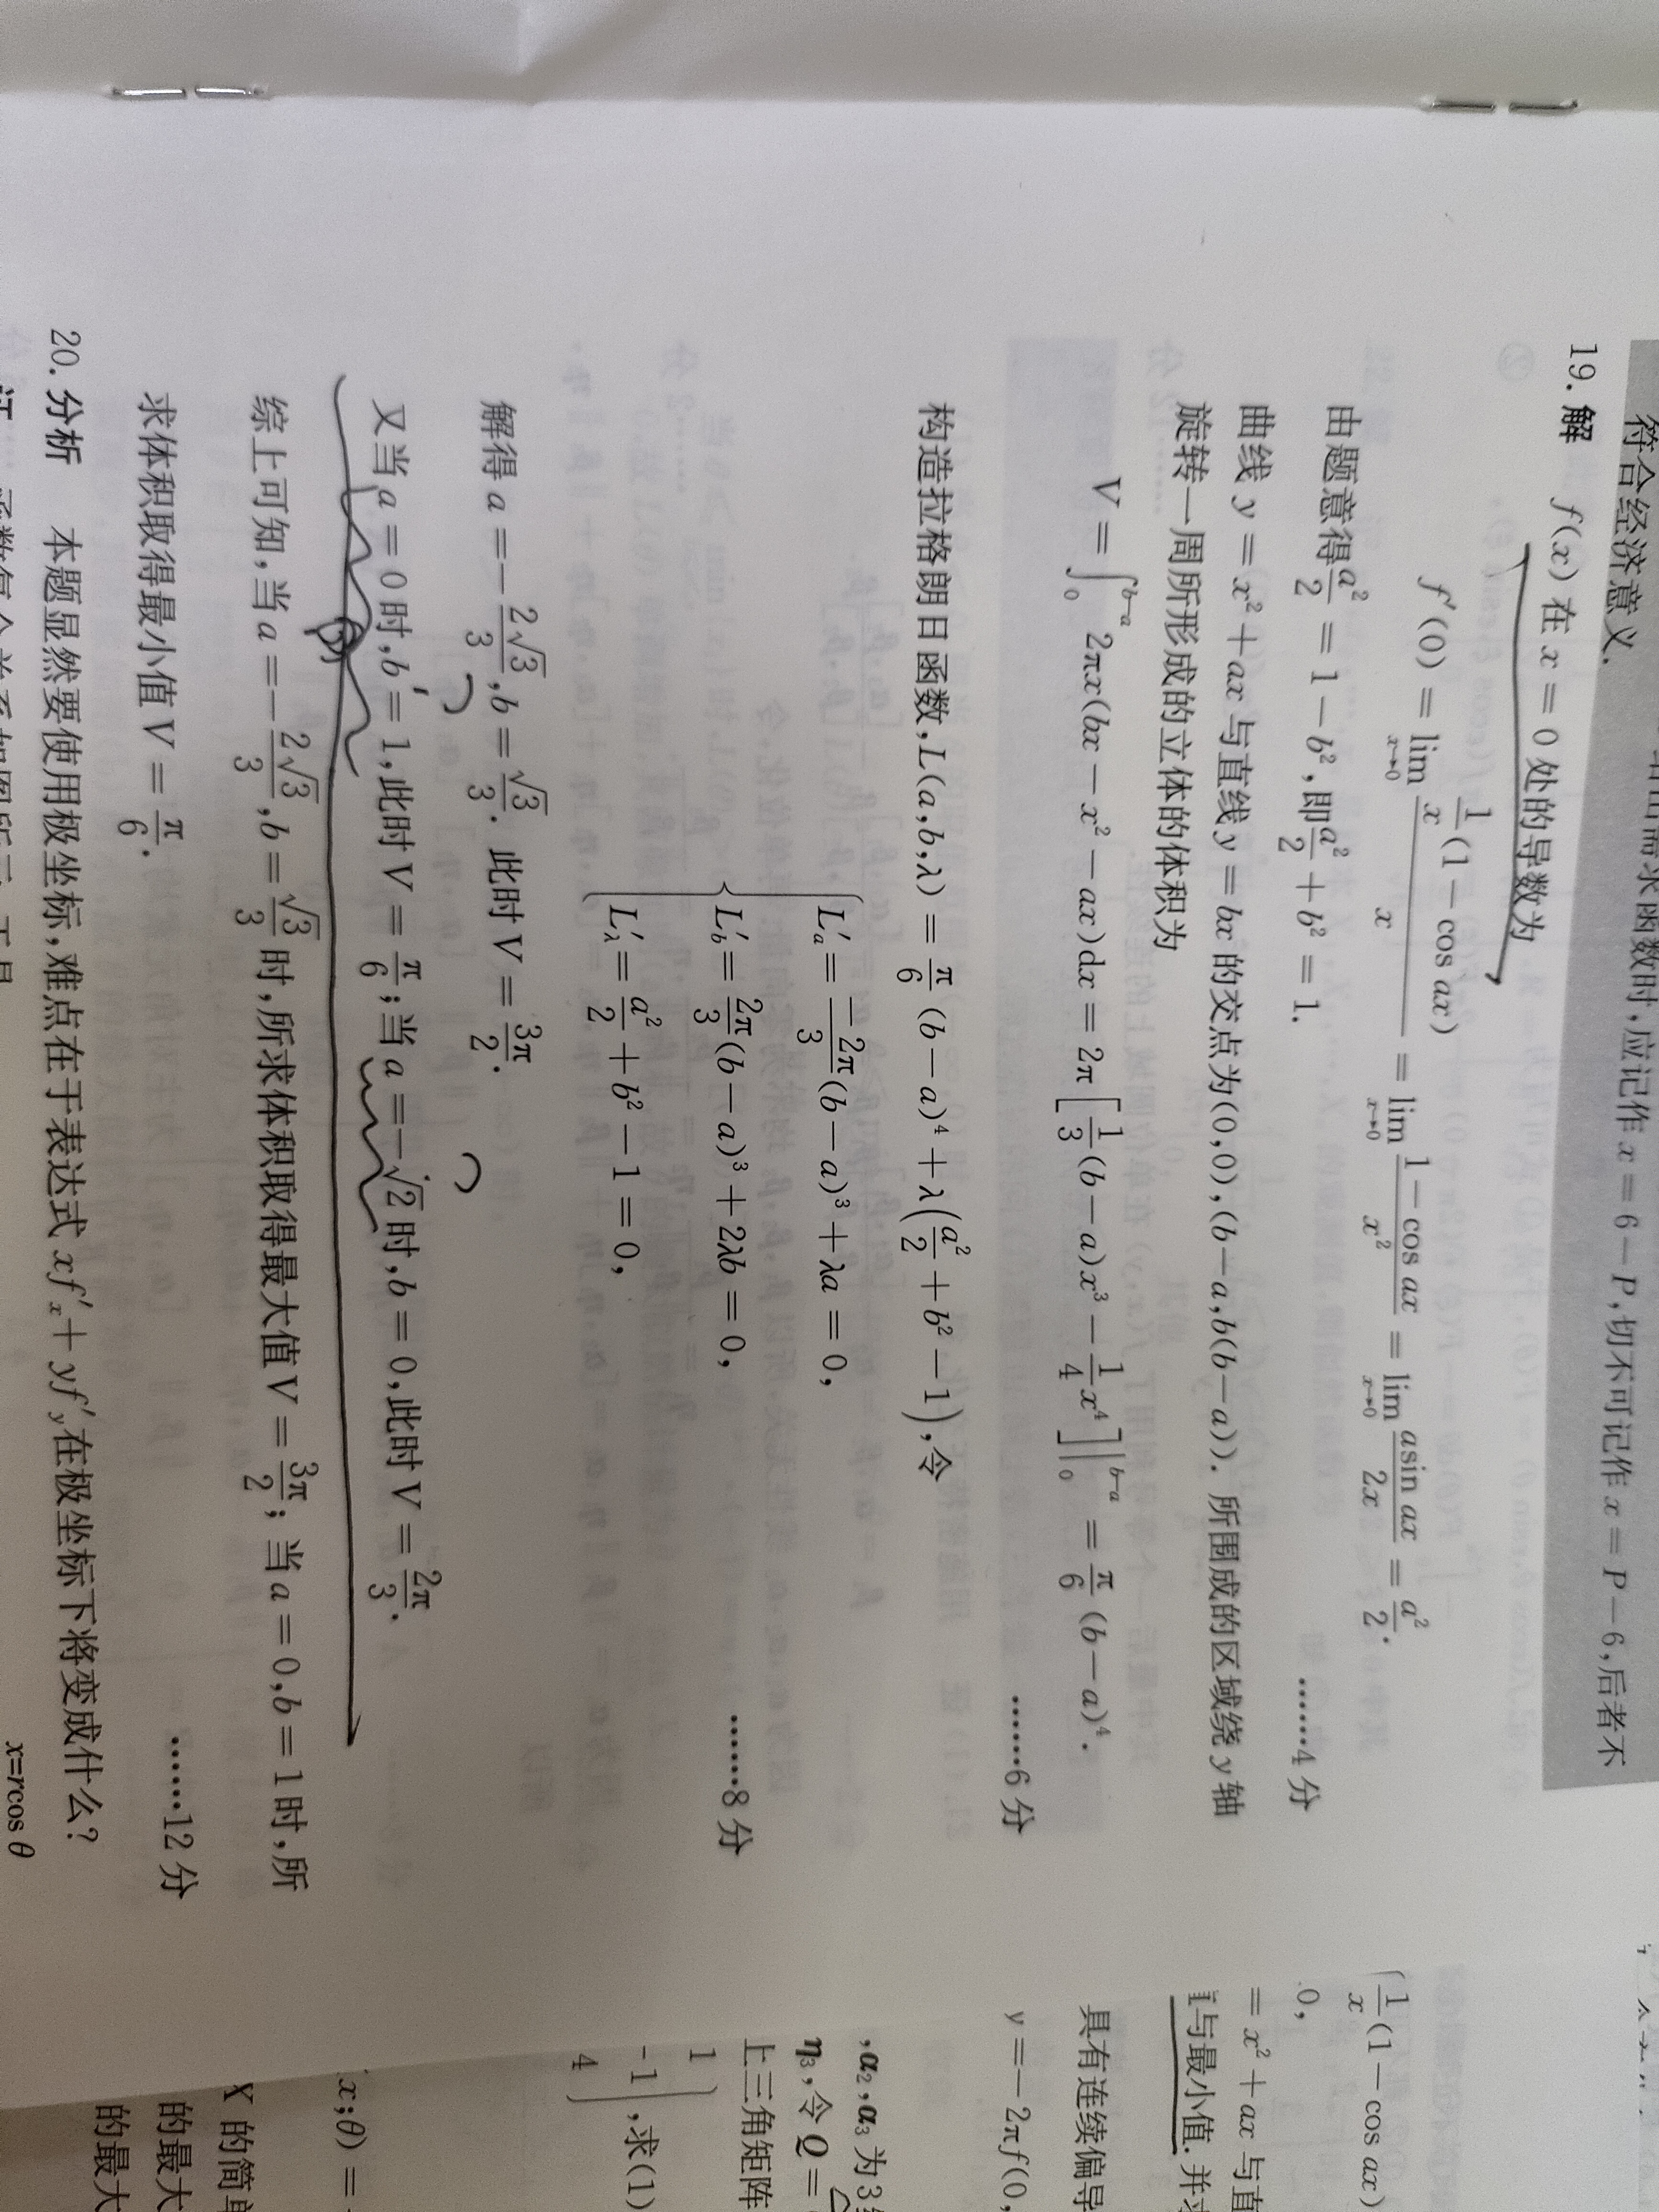 给出需求函数时,应记作 x = 6 − P,切不可记作 x = P − 6,后者不
符合经济意义.
19. 解 f(x) 在 x = 0 处的导数为
f′(0) = lim_{x→0} \frac{\frac{1}{x}(1 − cos ax)}{x} = lim_{x→0} \frac{1 − cos ax}{x²} = lim_{x→0} \frac{asin ax}{2x} = \frac{a²}{2}.
由题意得 \frac{a²}{2} = 1 − b², 即 \frac{a²}{2} + b² = 1.
……4 分
曲线 y = x² + ax 与直线 y = bx 的交点为(0,0),(b − a,b(b − a)). 所围成的区域绕 y 轴
旋转一周所形成的立体的体积为
V = ∫_0^{b−a} 2πx(bx − x² − ax)dx = 2π[\frac{1}{3}(b − a)x³ − \frac{1}{4}x⁴]|_0^{b−a} = \frac{π}{6}(b − a)⁴.
……6 分
构造拉格朗日函数,L(a,b,λ) = \frac{π}{6}(b − a)⁴ + λ(\frac{a²}{2} + b² − 1),令
L′_a = \frac{−2π}{3}(b − a)³ + λa = 0,
L′_b = \frac{2π}{3}(b − a)³ + 2λb = 0,
L′_λ = \frac{a²}{2} + b² − 1 = 0,
……8 分
解得 a = −\frac{2√3}{3}, b = \frac{√3}{3}. 此时 V = \frac{3π}{2}.
又当 a = 0 时,b = 1,此时 V = \frac{π}{6}; 当 a = −√2 时,b = 0,此时 V = \frac{2π}{3}.
综上可知,当 a = −\frac{2√3}{3}, b = \frac{√3}{3} 时,所求体积取得最大值 V = \frac{3π}{2}; 当 a = 0,b = 1 时,所
求体积取得最小值 V = \frac{π}{6}.
……12 分
20. 分析 本题显然要使用极坐标,难点在于表达式 xf′_x + yf′_y 在极坐标下将变成什么?
x=rcos θ
\frac{1}{x}(1 − cos ax)
0,
= x² + ax 与直
与最小值. 并求
具有连续偏导
y = − 2πf(0,
,α₂,α₃ 为 3
η₃,令 Q =
上三角矩阵
1
-1 ,求(1)
4
x;θ) =
X 的简单
的最大
的最大